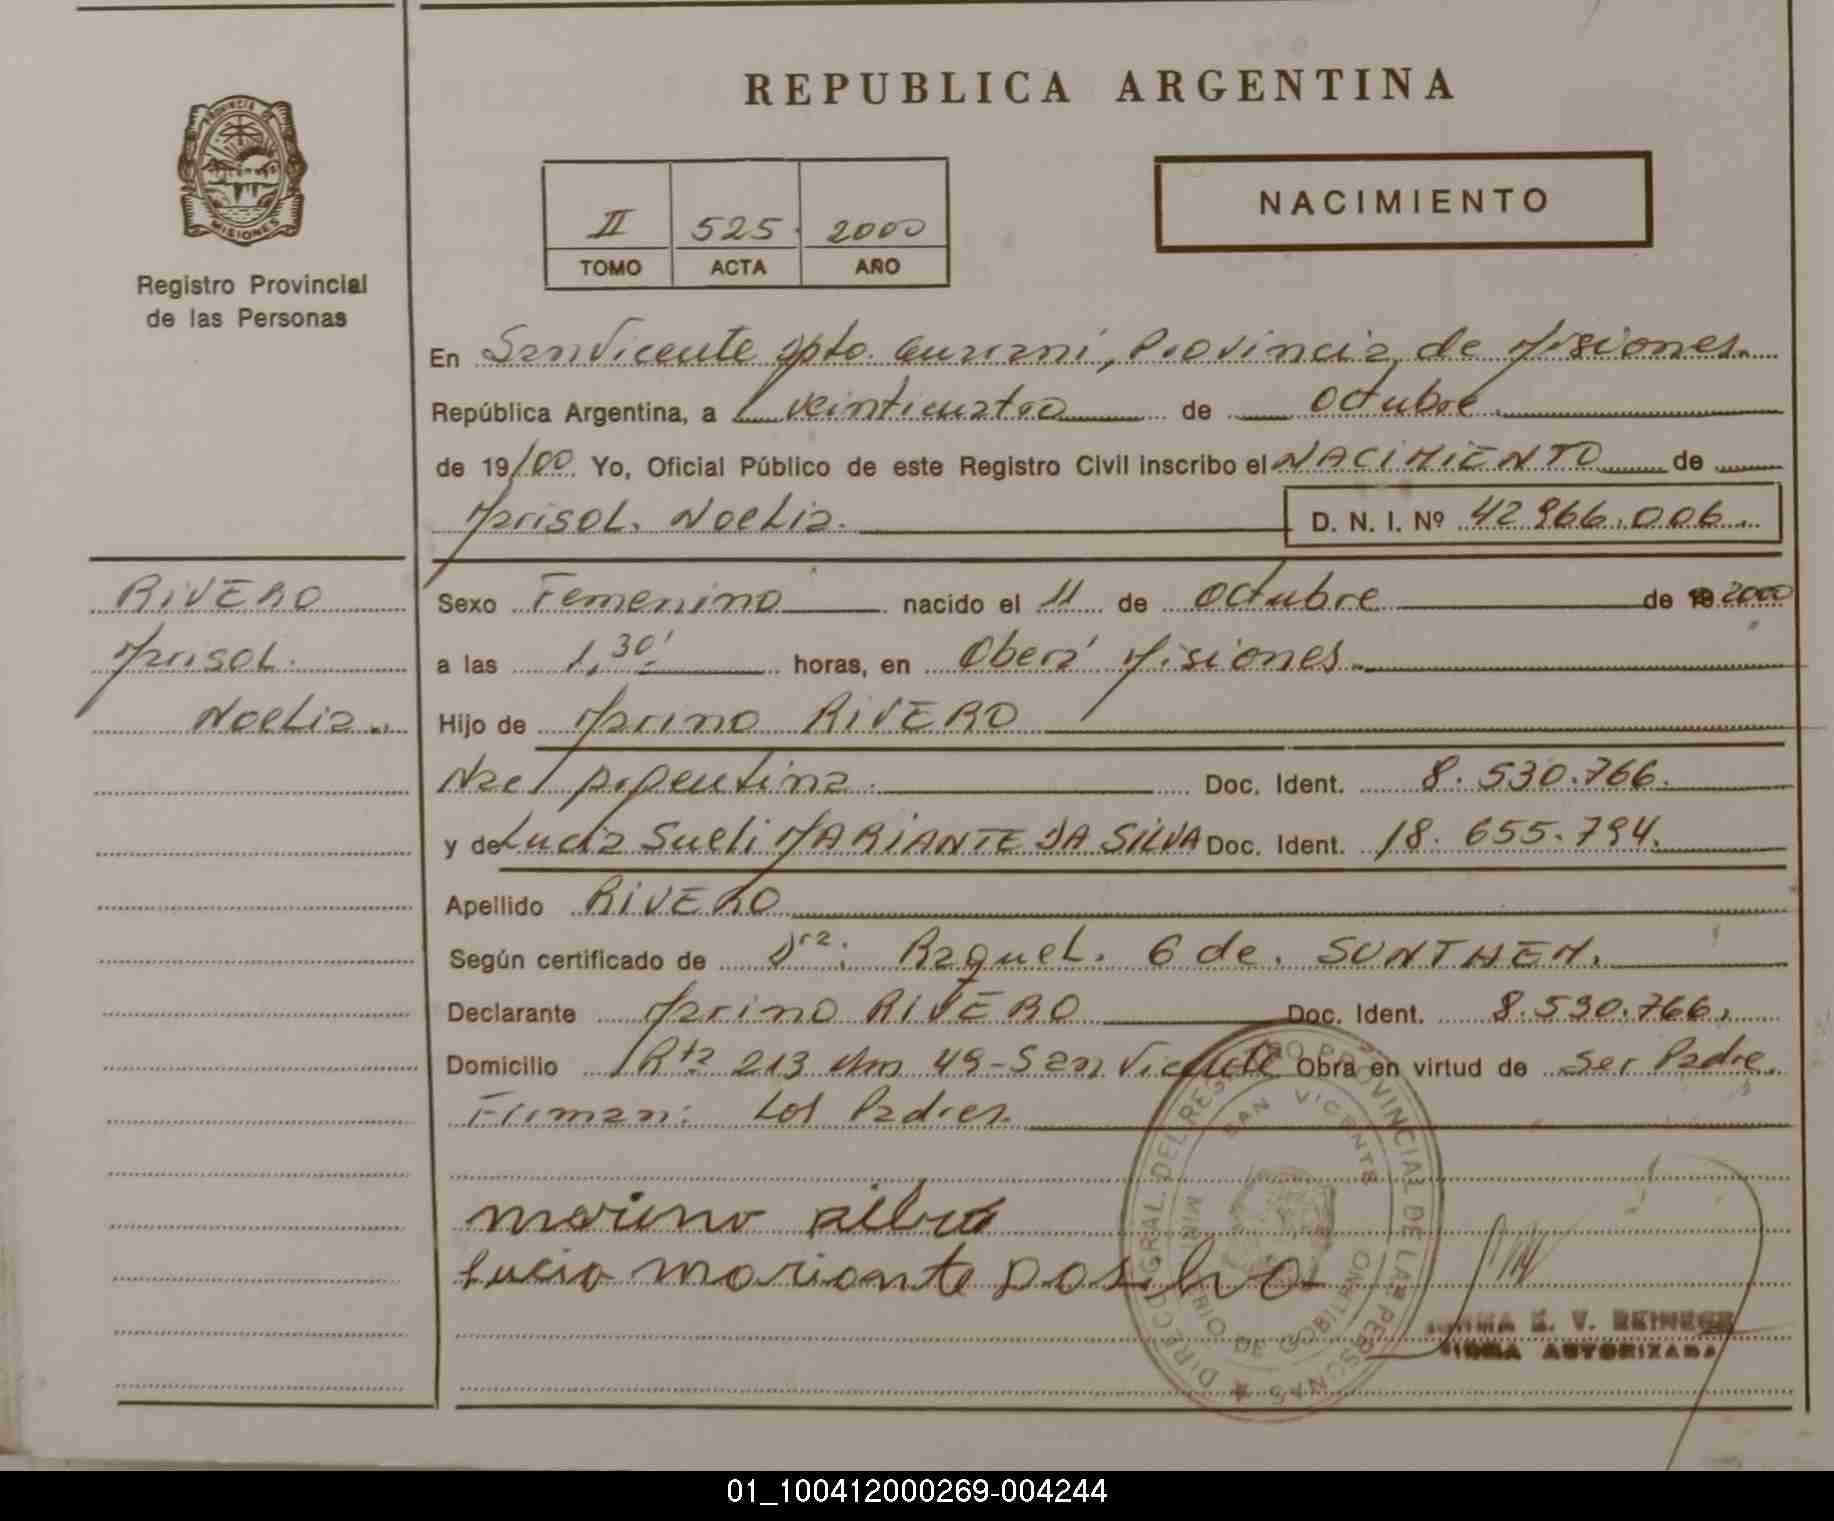 REPUBLICA ARGENTINA
PROVINCIA DE
MISIONES
Registro Provincial
de las Personas
II 525 2000
TOMO ACTA AÑO
NACIMIENTO
En San Vicente Dpto. Guarani, Provincia de Misiones.
República Argentina, a veinticuatro de Octubre
de 19/00 Yo, Oficial Público de este Registro Civil inscribo el NACIMIENTO de
Marisol. Noelia. D. N. I. Nº 42966.006.
RIVERO
Marisol.
Noelia.
Sexo Femenino nacido el 11 de Octubre de 2000
a las 1,30' horas, en Oberá Misiones
Hijo de Marino RIVERO
Nac Argentina. Doc. Ident. 8.530.766.
y de Lucia Sueli MARIANTE DA SILVA Doc. Ident. 18.655.794.
Apellido RIVERO
Según certificado de Dra: Raquel. G de. SUNTHEM.
Declarante Marino RIVERO Doc. Ident. 8.530.766.
Domicilio Rta 213 Km 49-San Vicente Obra en virtud de Ser Padre.
Firman: Los Padres.
marino
Lucia mariante Da silva
DIRECC. GRAL. DEL REGISTRO PROVINCIAL DE LAS PERSONAS
SAN VICENTE
MINISTERIO DE GOBIERNO
E. V. REINECK
FIRMA AUTORIZADA
01_100412000269-004244